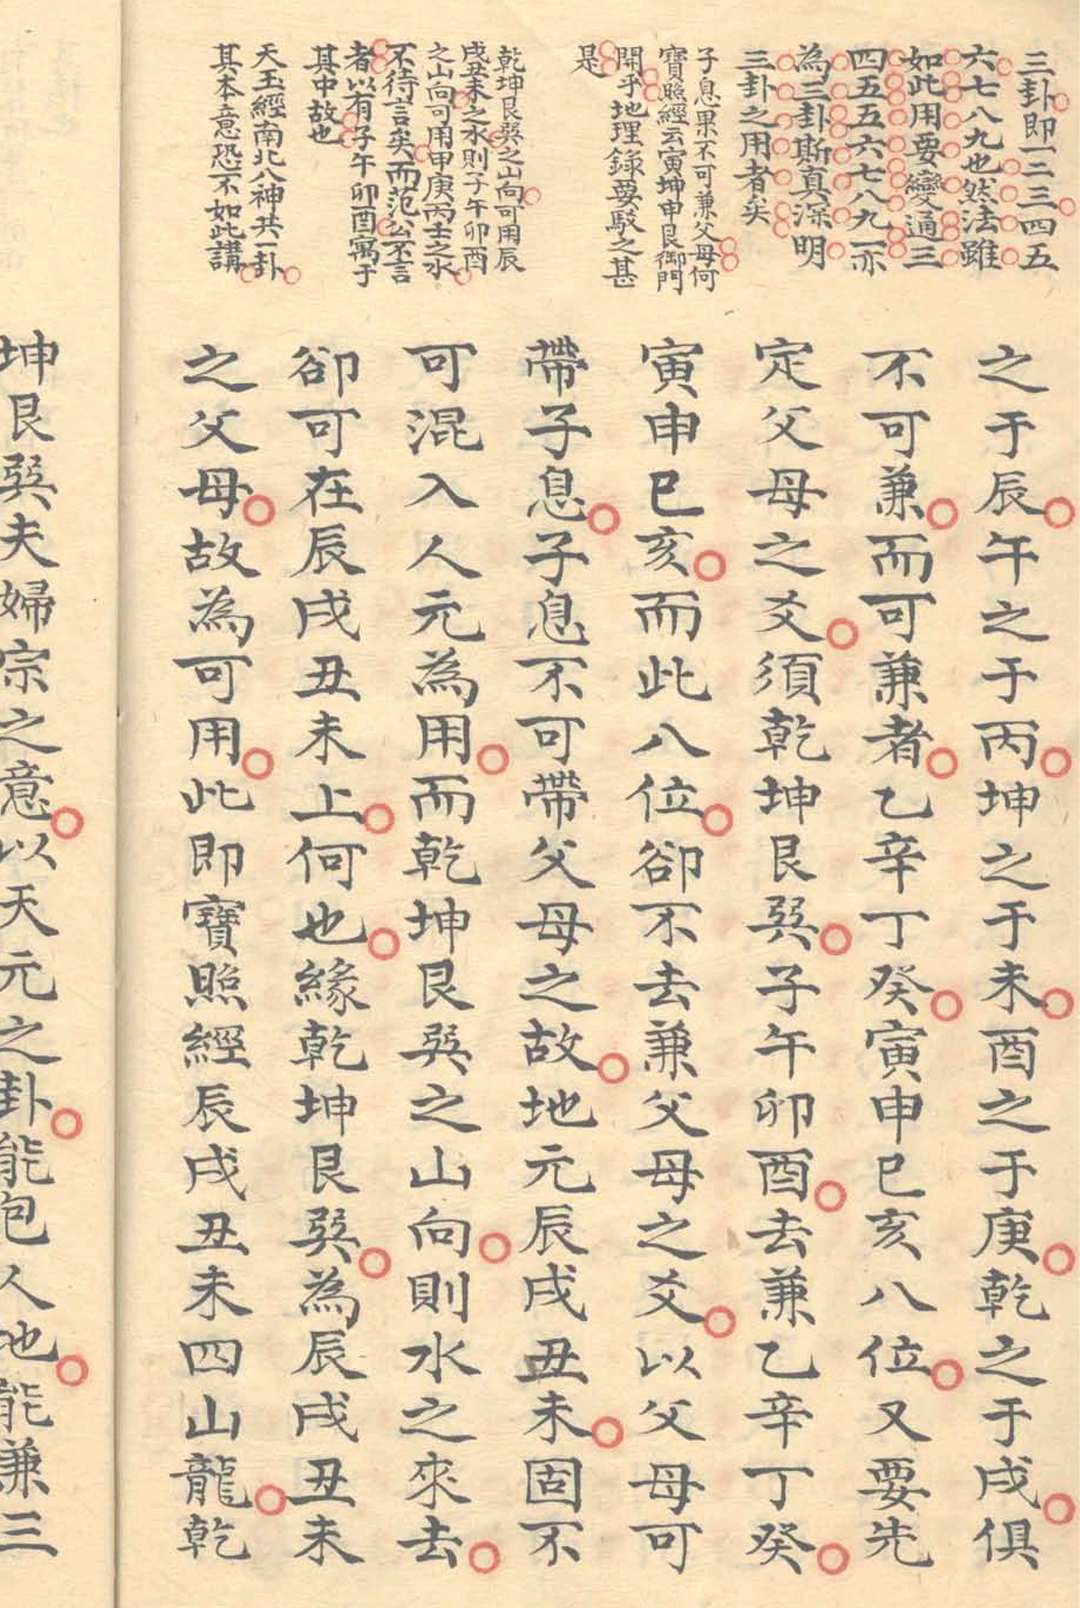 三卦即一二三四五
六七八九也然法雖
如此用要變通三
四五五六七八九一亦
為三卦斯真深明
三卦之用者矣
子息果不可兼父母何
寶照經云寅坤申艮御門
開乎地理錄要駁之甚
是
乾坤艮巽之山向可用辰
戌丑未之水則子午卯酉
之山向可用甲庚丙壬之水
不待言矣而范公不言
者以有子午卯酉寓于
其中故也
天玉經南北八神共一卦
其本意恐不如此講
之于辰午之于丙坤之于未酉之于庚乾之于戌俱
不可兼而可兼者乙辛丁癸寅申巳亥八位又要先
定父母之爻須乾坤艮巽子午卯酉去兼乙辛丁癸
寅申巳亥而此八位卻不去兼父母之爻以父母可
帶子息子息不可帶父母之故地元辰戌丑未固不
可混入人元為用而乾坤艮巽之山向則水之來去
卻可在辰戌丑未上何也緣乾坤艮巽為辰戌丑未
之父母故為可用此即寶照經辰戌丑未四山龍乾
坤艮巽夫婦宗之意以天元之卦能包人地能兼三